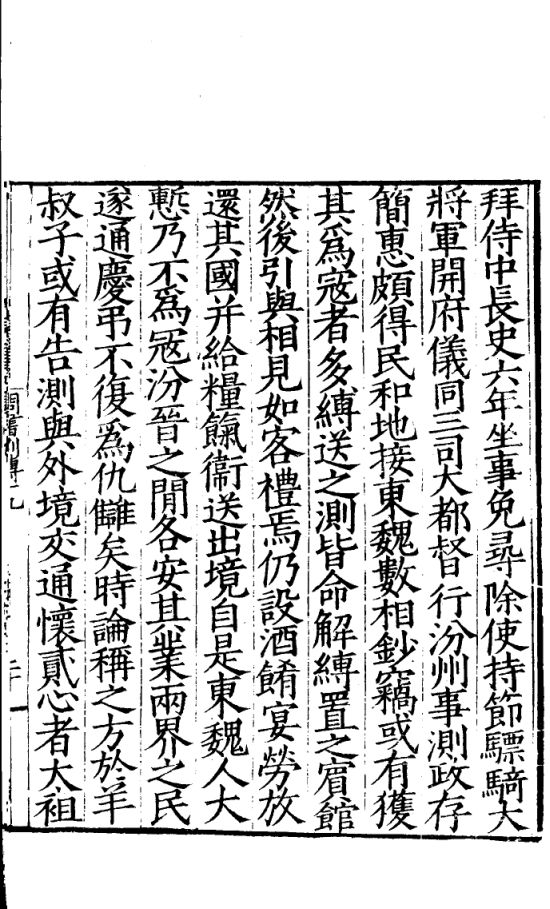 拜侍中長史六年坐事免尋除使持節驃騎大
將軍開府儀同三司大都督行汾州事測政存
簡惠頗得民和地接東魏數相鈔竊或有獲
其爲寇者多縛送之測皆命解縛置之賔館
然後引與相見如客禮焉仍設酒餚宴勞放
還其國并給糧餼衞送出境自是東魏人大
慙乃不爲寇汾晉之閒各安其業兩界之民
遂通慶弔不復爲仇讎矣時論稱之方於羊
叔子或有告測與外境交通懷貳心者大祖
周書列傳十九